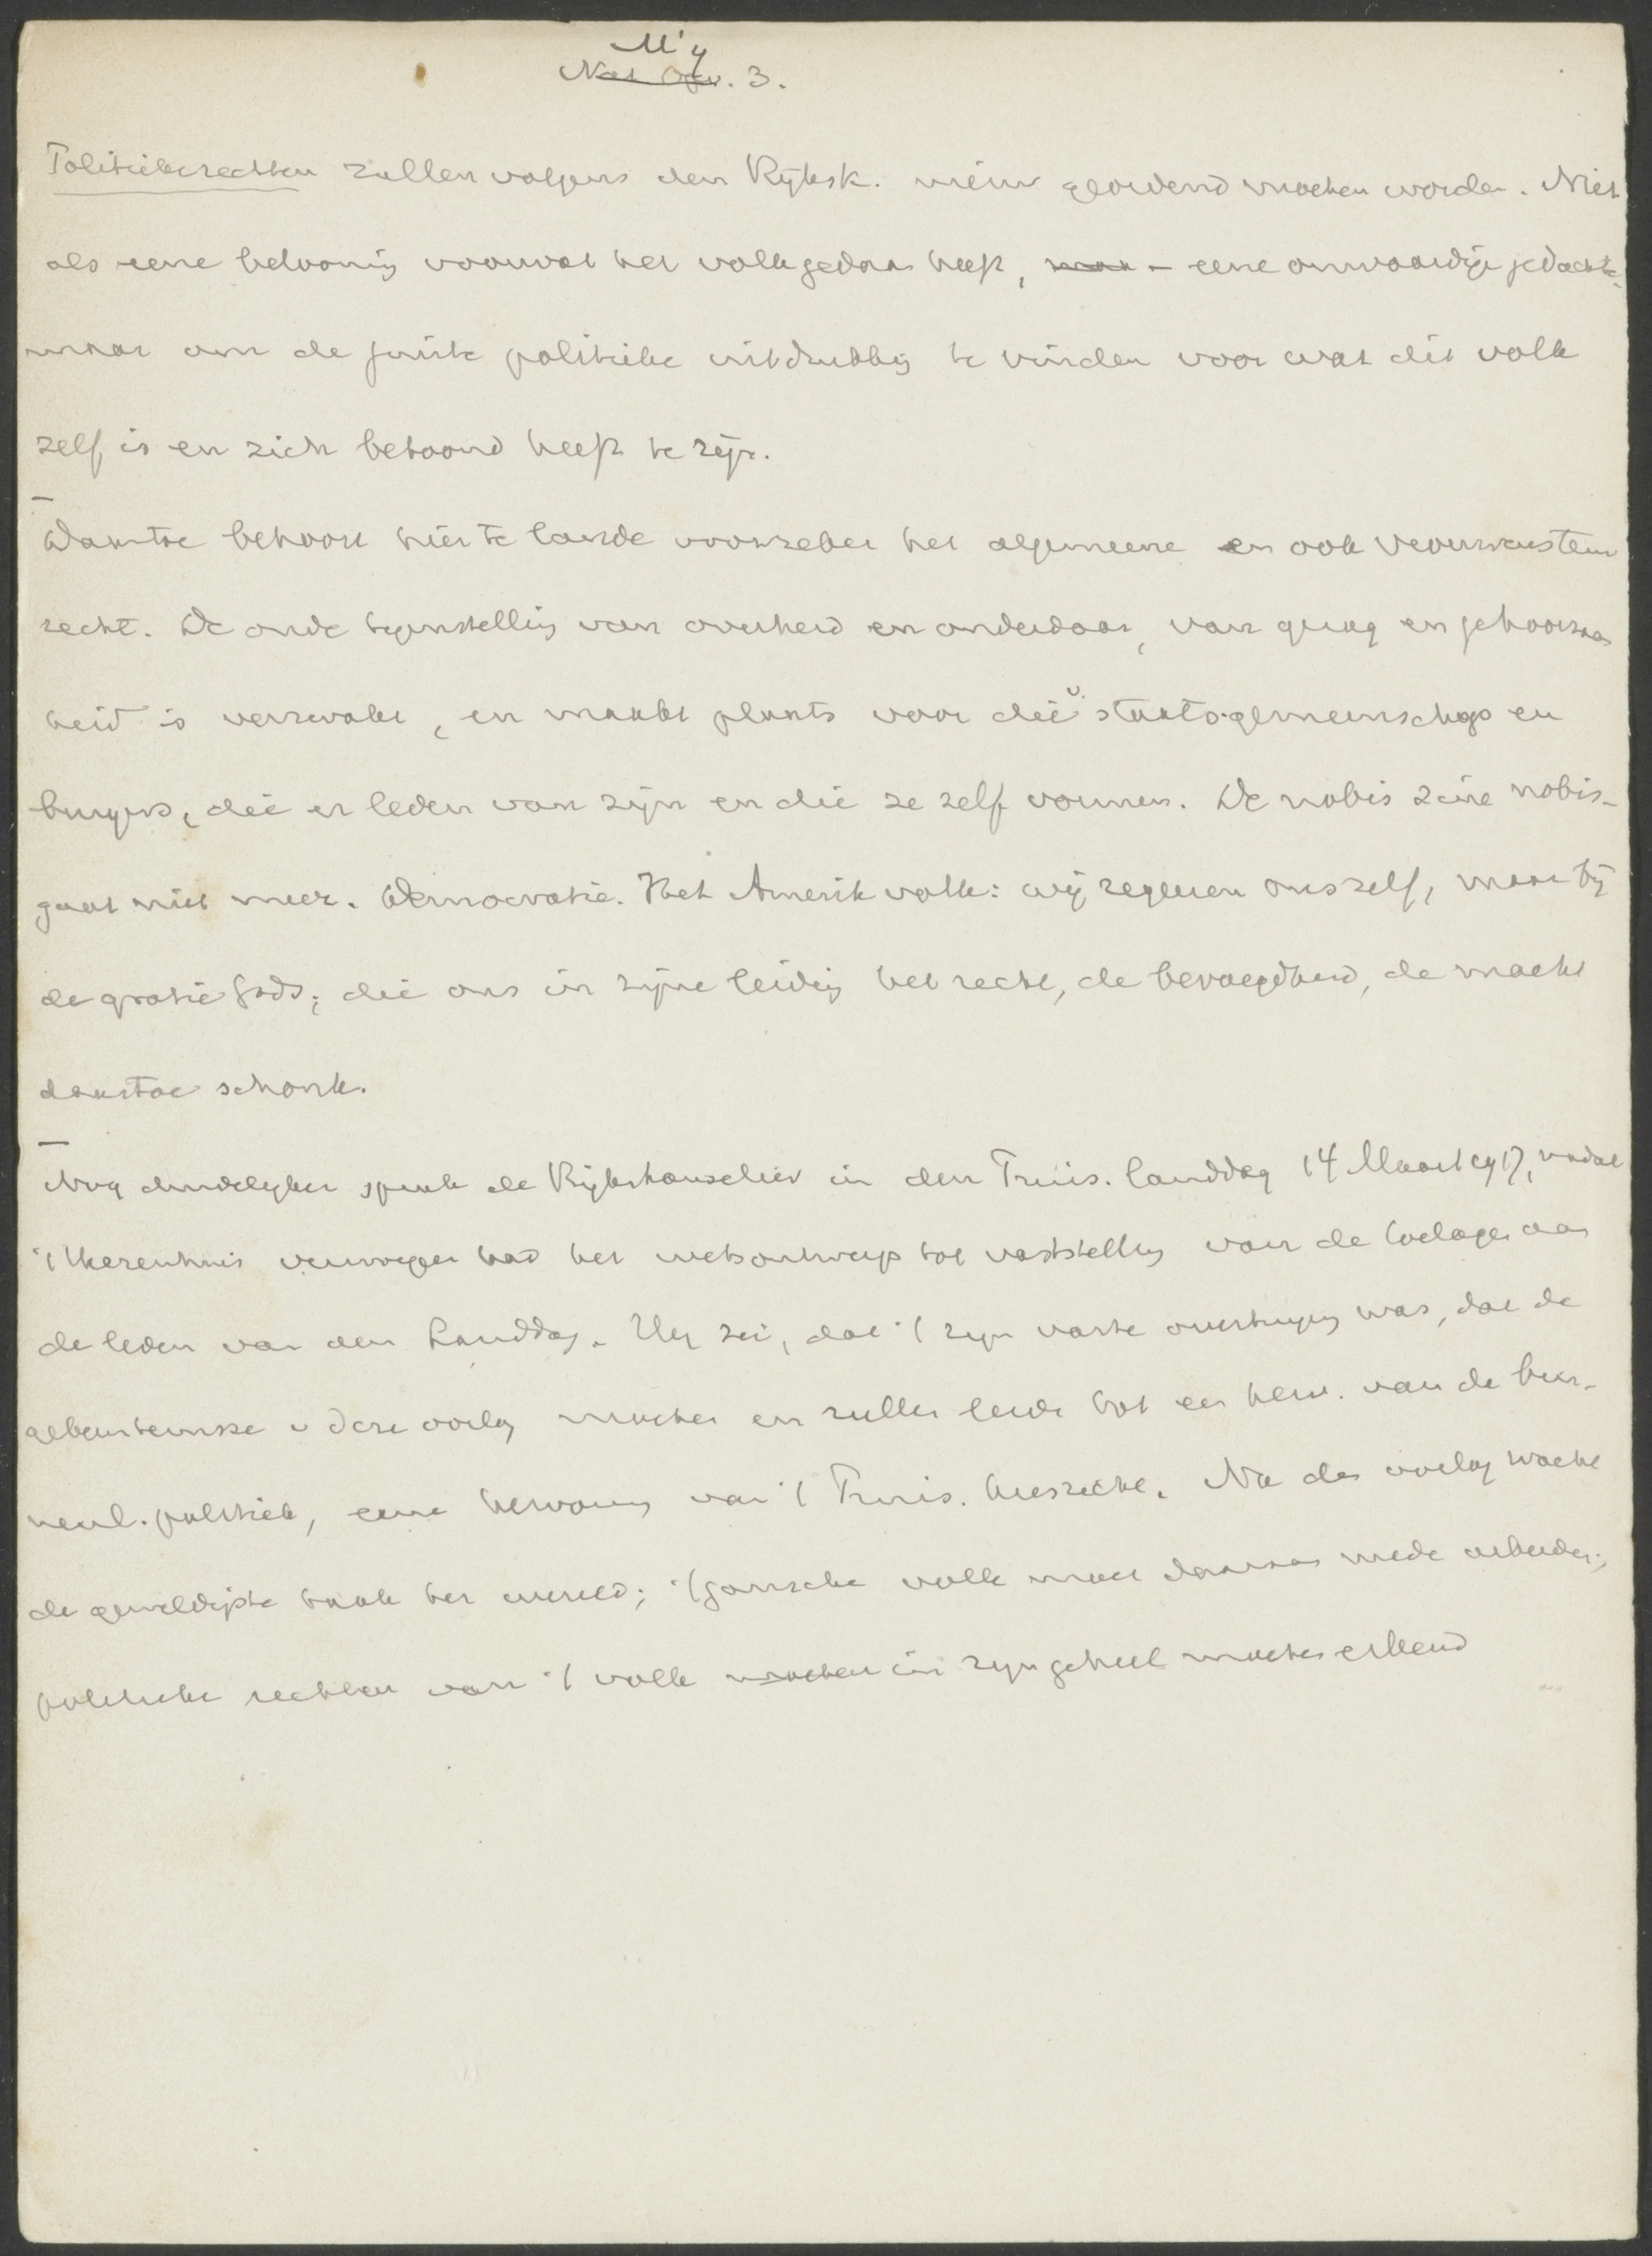 M'y
Nat Opv. 3.
Politieke rechten zullen volgens den Rijksk. nieuw geordend moeten worden. Niet
als eene belooning voor wat het volk gedaan heeft, maar – eene onwaardige gedachte –
maar om de juiste politieke uitdrukking te vinden voor wat dit volk
zelf is en zich betoond heeft te zijn.
Daartoe behoort hier te lande voorzeker het algemeene en ook vrouwenstem
recht. De oude tegenstelling van overheid en onderdaan, van gezag en gehoorzaam
heid is verzwakt, en maakt plaats voor die v. staatsgemeenschap en
burgers, die er leden van zijn en die ze zelf vormen. De nobis sine nobis –
gaat niet meer. Democratie. Het Amerik volk: wij regeeren ons zelf, maar bij
de gratie Gods, die ons in zijne leiding het recht, de bevoegdheid, de macht
daartoe schonk.
Nog duidelijker sprak de Rijkskanselier in den Pruis. landdag 14 Maart 1917, nadat
't Heerenhuis verworpen had het wetsontwerp tot vaststelling van de toelagen aan
de leden van den Landdag. Hij zei, dat 't zijn vaste overtuiging was, dat de
gebeurtenissen v deze oorlog moeten en zullen leiden tot een herv. van de bin-
nenl. politiek, eene hervorming van 't Pruis. kiesrecht. Na den oorlog wacht
de geweldigste taak ter wereld; 't gansche volk moet daaraan mede arbeiden;
politieke rechten van 't volk moeten in zijn geheel moeten erkend